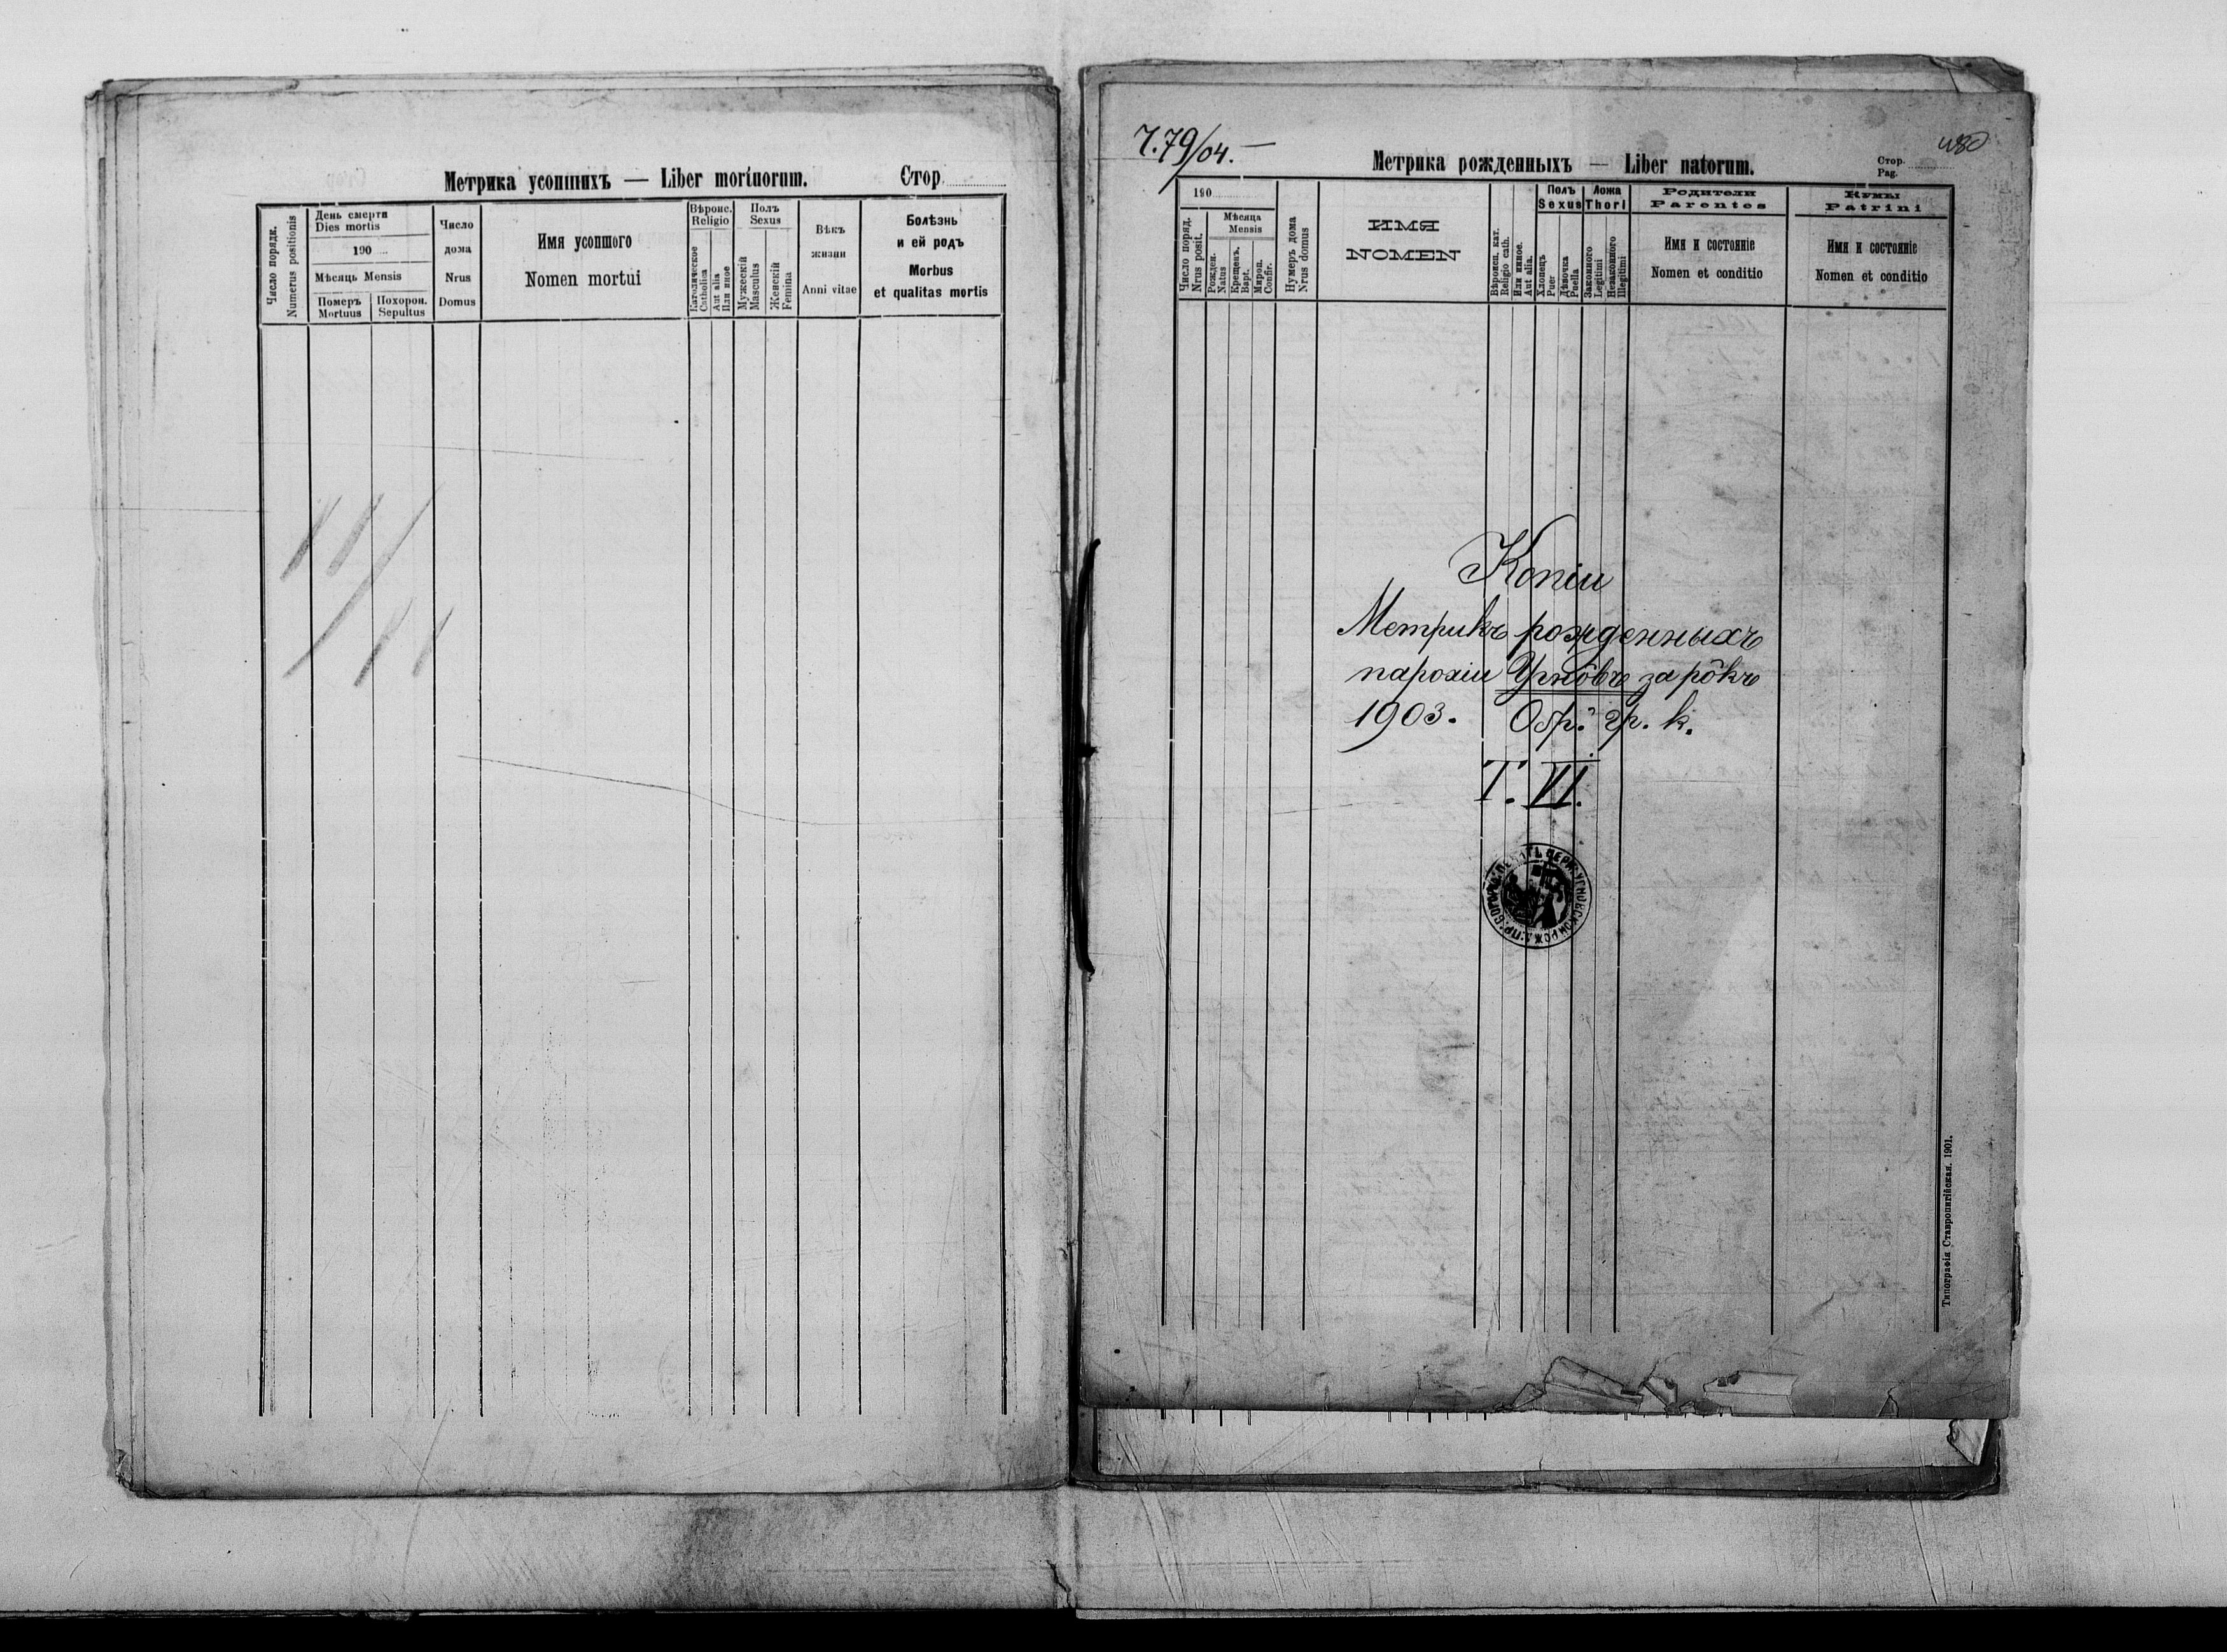 Метрика усопшихъ — Liber mortuorum. Стор.
Число порядк. Numerus positionis
День смерти
Dies mortis
190
Мѣсяць Mensis
Померъ
Mortuus
Похорон.
Sepultus
Число
дома
Nrus
Domus
Имя усопшого
Nomen mortui
Вѣроис.
Religio
Католическое
Catholica
Aut alia
Или иное
Полъ
Sexus
Мужескій
Masculus
Женскій
Femina
Вѣкъ
жизни
Anni vitae
Болѣзнь
и ей родъ
Morbus
et qualitas mortis
Ч.79/04.—
480
Метрика рожденныхъ — Liber natorum.
Стор.
Pag.
190
Число поряд.
Nrus posit.
Мѣсяца
Mensis
Рожден.
Natus
Крещенъ.
Bapt.
Миров.
Confir.
Нумеръ дома
Nrus domus
ИМЯ
NOMEN
Вѣроисп. кат.
Religio cath.
Или иное.
Aut alia.
Полъ
Sexus
Хлопець
Puer
Дѣвочка
Puella
Ложа
Thori
Законного
Legitimi
Незаконного
Illegitimi
Родители
Parentes
Имя и состояніе
Nomen et conditio
Кумы
Patrini
Имя и состояніе
Nomen et conditio
Копіи
Метрикъ рожденныхъ
парохіи Угнôвъ за рôкъ
1903. Обр. гр. к.
Т. VI.
Типографія Ставропигійская. 1901.